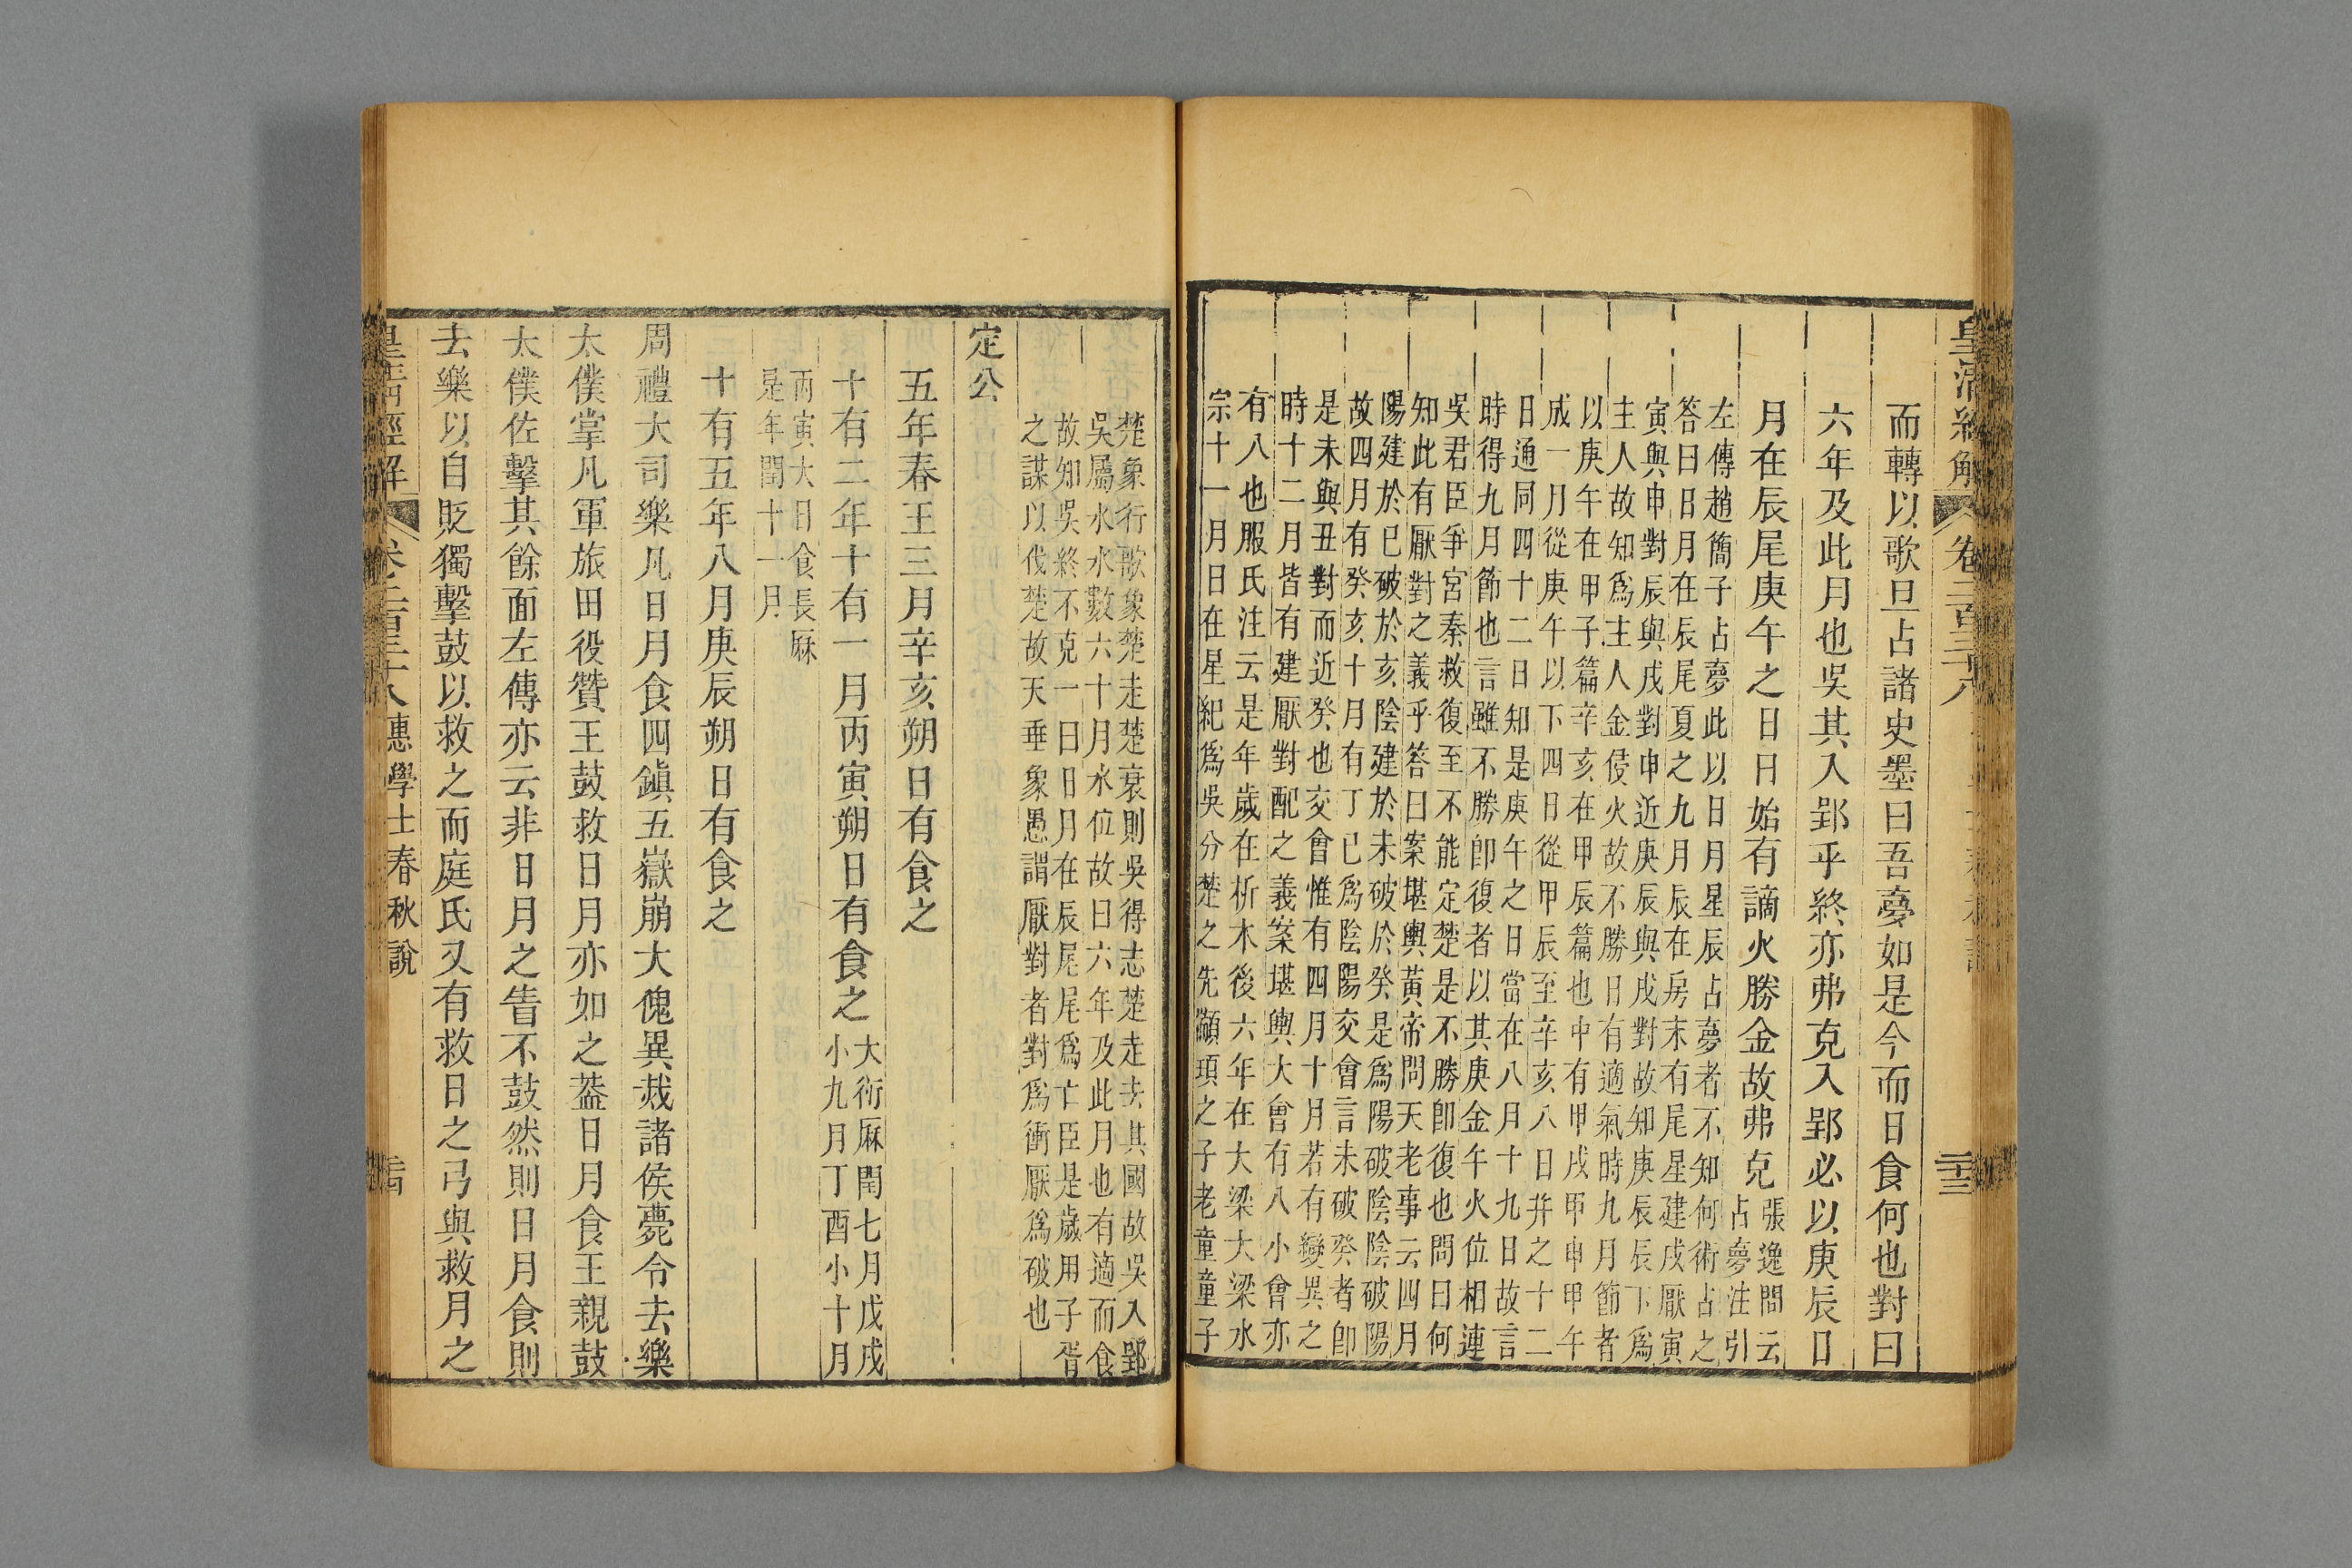 皇清經解
卷二百三十八
二十三
而轉以歌旦占諸史墨曰吾夢如是今而日食何也對曰
六年及此月也吳其入郢乎終亦弗克入郢必以庚辰日
月在辰尾庚午之日日始有謫火勝金故弗克
張逸問云
占夢注引
左傳趙簡子占夢此以日月星辰占夢者不知何術占之
答曰日月在辰尾夏之九月辰在房末有尾星建戌厭寅
寅與申對辰與戌對申近庚辰與戌對故知庚辰辰下爲
主人故知爲主人金侵火故不勝日有適氣時九月節者
以庚午在甲子篇辛亥在甲辰篇也中有甲戌甲申甲午
成一月從庚午以下四日從甲辰至辛亥八日并之十二
日通同四十二日知是庚午之日當在八月十九日故言
時得九月節也言雖不勝卽復者以其庚金午火位相連
吳君臣爭宮秦救復至不能定楚是不勝卽復也問曰何
知此有厭對之義乎答曰案堪輿黃帝問天老事云四月
陽建於巳破於亥陰建於未破於癸是爲陽破陰陰破陽
故四月有癸亥十月有丁巳爲陰陽交會言未破癸者卽
是未與丑對而近癸也交會惟有四月十月若有變異之
時十二月皆有建厭對配之義案堪輿大會有八小會亦
有八也服氏注云是年歲在析木後六年在大梁大梁水
宗十一月日在星紀爲吳分楚之先顓頊之子老童童子
楚象行歌象楚走楚衰則吳得志楚走去其國故吳入郢
吳屬水水數六十月水位故曰六年及此月也有適而食
故知吳終不克一曰日月在辰尾尾爲亡臣是歲用子胥
之謀以伐楚故天垂象愚謂厭對者對爲衝厭爲破也
定公
五年春王三月辛亥朔日有食之
十有二年十有一月丙寅朔日有食之
大衍厤閏七月戊戌
小九月丁酉小十月
丙寅大日食長厤
是年閏十一月
十有五年八月庚辰朔日有食之
周禮大司樂凡日月食四鎭五嶽崩大傀異烖諸侯薨令去樂
太僕掌凡軍旅田役贊王鼓救日月亦如之葢日月食王親鼓
太僕佐擊其餘面左傳亦云非日月之眚不鼓然則日月食則
去樂以自貶獨擊鼓以救之而庭氏又有救日之弓與救月之
皇清經解
卷二百三十八
惠學士春秋說
二十四